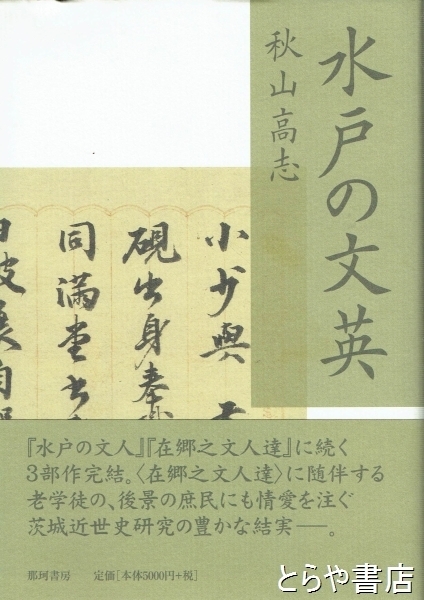 水戸の文英
秋山高志
小少與
硯出身奉
同満堂
『水戸の文人』『在郷之文人達』に続く
3部作完結。〈在郷之文人達〉に随伴する
老学徒の、後景の庶民にも情愛を注ぐ
茨城近世史研究の豊かな結実──。
那珂書房　定価[本体5000円+税]
とらや書店